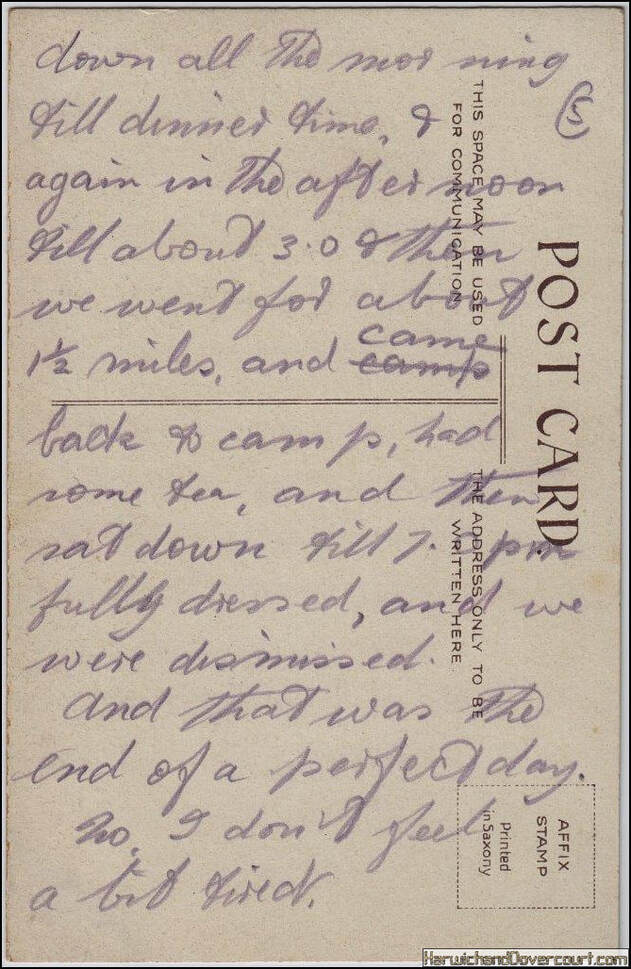 down all the morning
till dinner time, &
again in the afternoon
till about 3.0 & then
we went for about
1½ miles, and camp came
back to camp, had
some tea, and then
sat down till 7. pm
fully dressed, and we
were dismissed.
And that was the
end of a perfect day.
No, I don't feel
a bit tired.
(5)
THIS SPACE MAY BE USED
FOR COMMUNICATION
POST CARD.
THE ADDRESS ONLY TO BE
WRITTEN HERE
AFFIX
STAMP
Printed
in Saxony
HarwichandDovercourt.com